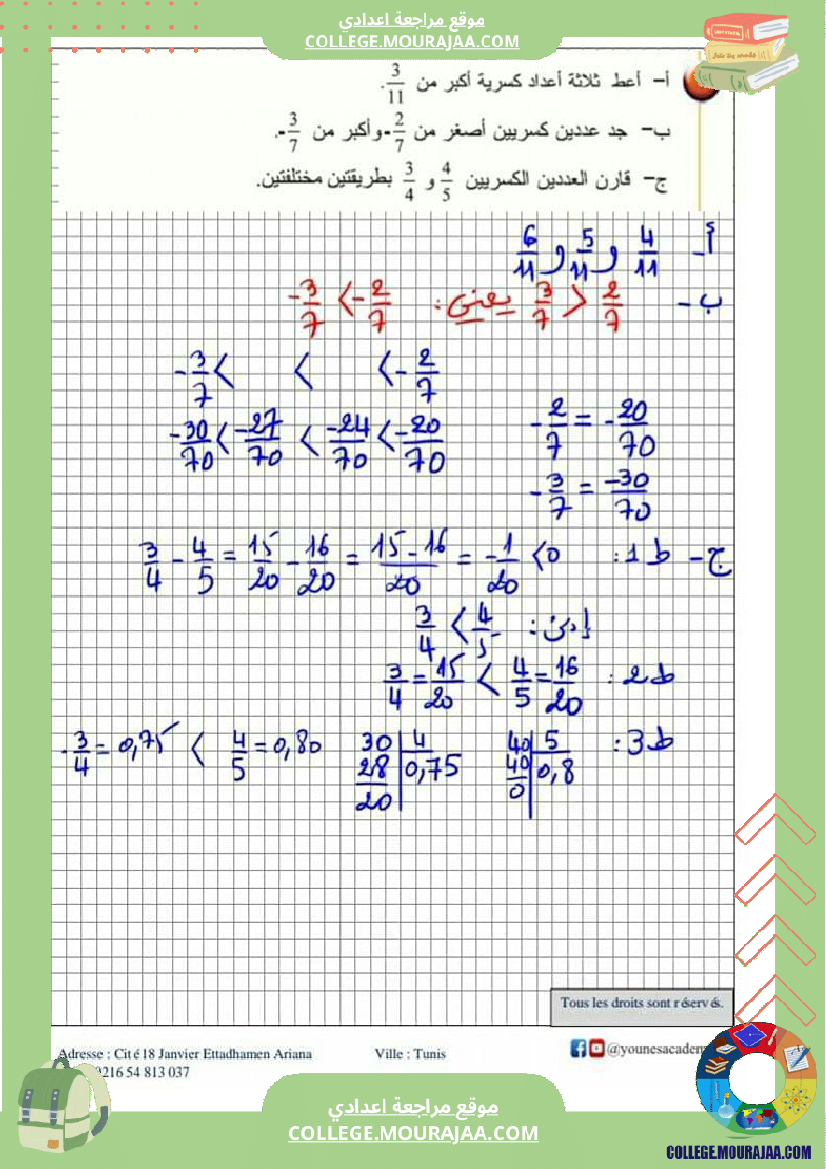 موقع مراجعة اعدادي
COLLEGE.MOURAJAA.COM
أ- أعط ثلاثة أعداد كسرية أكبر من 3/11.
ب- جد عددين كسريين أصغر من -2/7 وأكبر من -3/7.
ج- قارن العددين الكسريين 4/5 و 3/4 بطريقتين مختلفتين.
أ- 4/11 و 5/11 و 6/11
ب- 2/7 < 3/7 يعني: -3/7 < -2/7
-3/7 < < < -2/7
-2/7 = -20/70
-30/70 < -27/70 < -24/70 < -20/70
-3/7 = -30/70
ج- ط1: 3/4 - 4/5 = 15/20 - 16/20 = 15-16/20 = -1/20 < 0
إذن: 3/4 < 4/5
ط2: 3/4 = 15/20 < 4/5 = 16/20
ط3: 40 5 30 4 -3/4 = 0,75 < 4/5 = 0,80
40 0,8 28 0,75
0 20
Tous les droits sont réservés.
Adresse : Cité 18 Janvier Ettadhamen Ariana Ville : Tunis @younesacadem
216 54 813 037
موقع مراجعة اعدادي
COLLEGE.MOURAJAA.COM
COLLEGE.MOURAJAA.COM